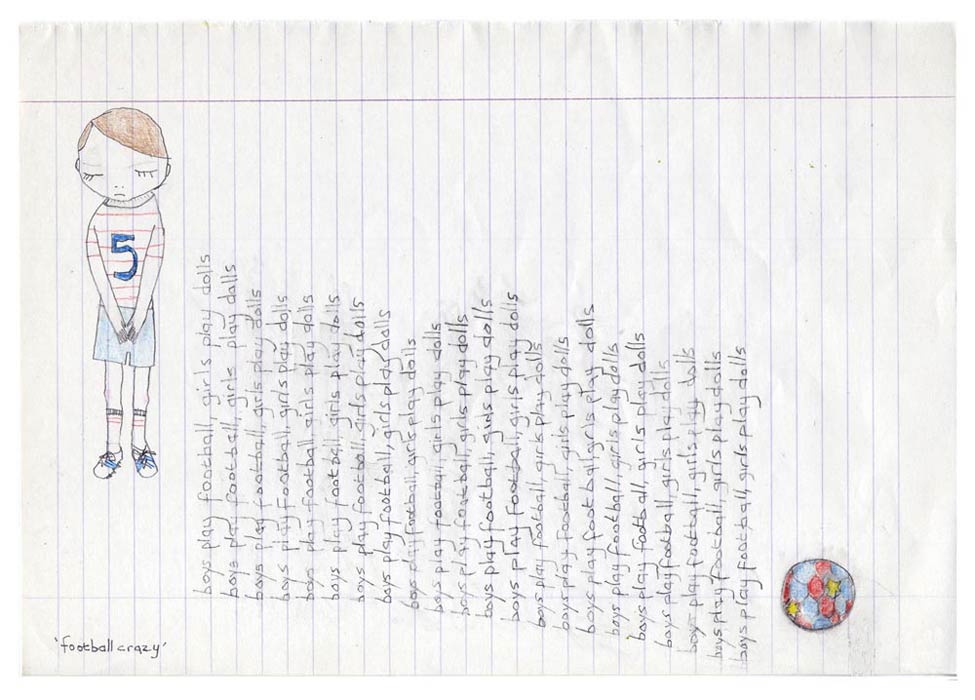 5
boys play football, girls play dolls
boys play football, girls play dolls
boys play football, girls play dolls
boys play football, girls play dolls
boys play football, girls play dolls
boys play football, girls play dolls
boys play football, girls play dolls
boys play football, girls play dolls
boys play football, girls play dolls
boys play football, girls play dolls
boys play football, girls play dolls
boys play football, girls play dolls
boys play football, girls play dolls
boys play football, girls play dolls
boys play football, girls play dolls
boys play football girls play dolls
boys play football, girls play dolls
boys play football, girls play dolls
boys play football, girls play dolls
boys play football, girls play dolls
boys play football, girls play dolls
boys play football, girls play dolls
'football crazy'